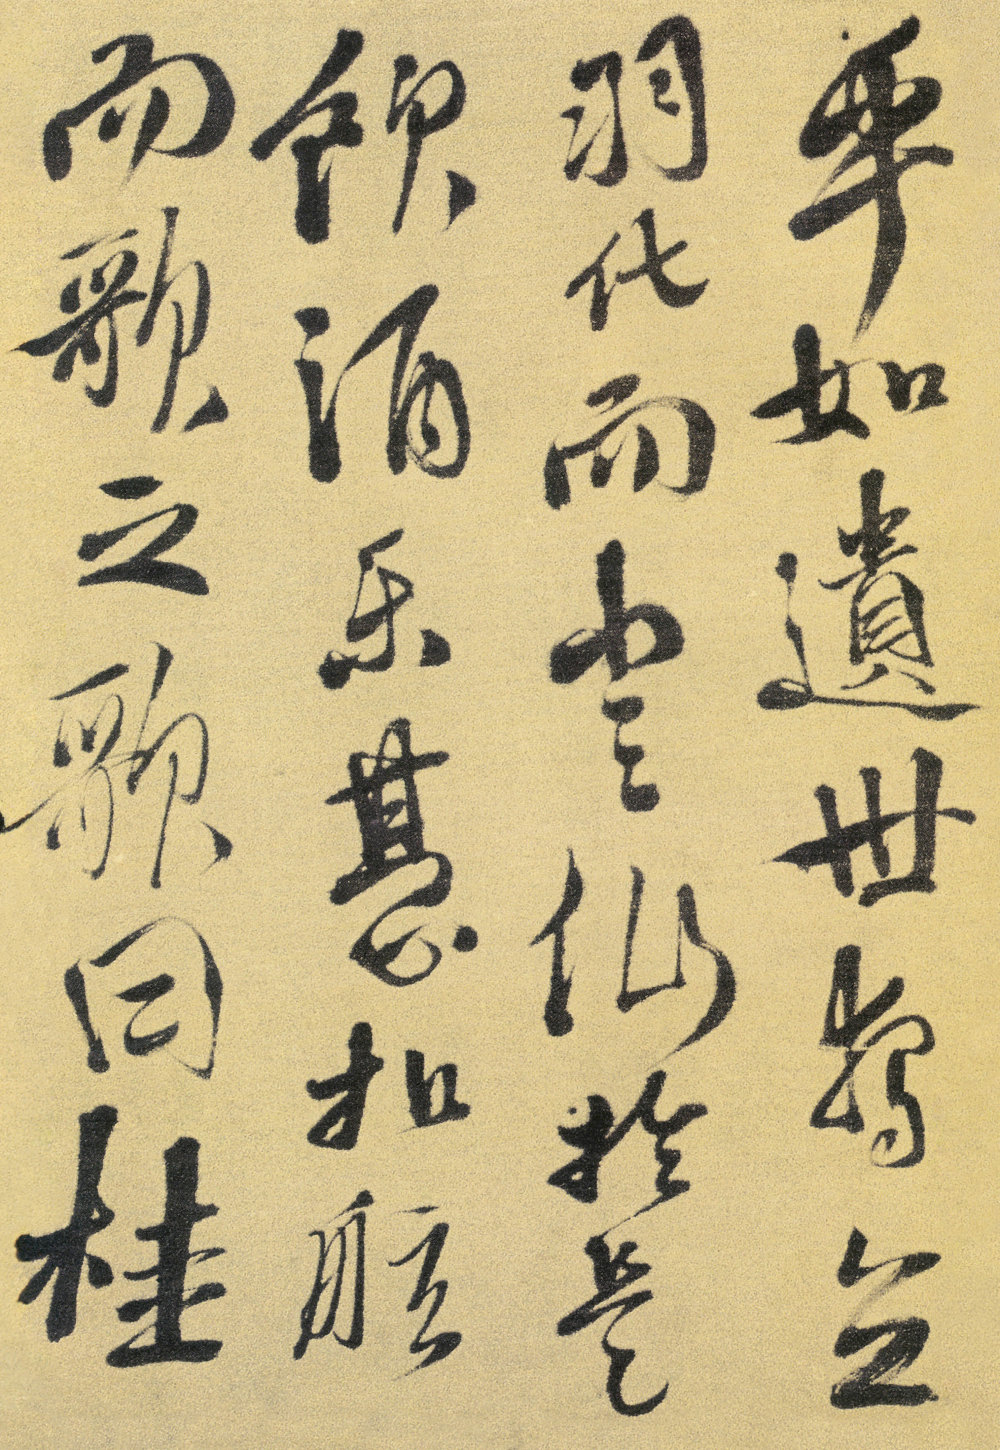 乎如遺世獨立
羽化而登仙於是
飲酒樂甚扣舷
而歌之歌曰桂